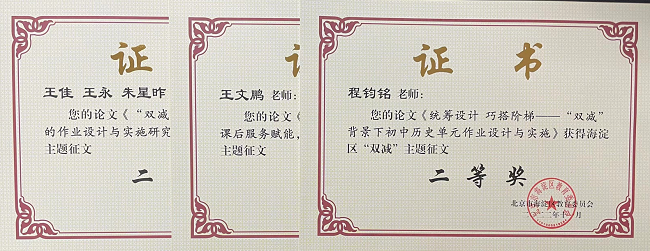 证
王佳 王永 朱星昨
您的论文《“双减
的作业设计与实施研究
主题征文
二
证
王文鹏 老师:
您的论文《
课后服务赋能,
主题征文
二
证 书
程钧铭 老师:
您的论文《统筹设计 巧搭阶梯——“双减”
背景下初中历史单元作业设计与实施》获得海淀
区“双减”主题征文
二等奖
北京市海淀区教育委员会
二年十 月